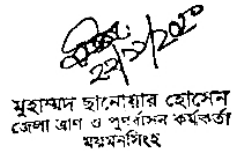 মুহাম্মদ ছানোয়ার হোসেন
জেলা ত্রাণ ও পুনর্বাসন কর্মকর্তা
ময়মনসিংহ